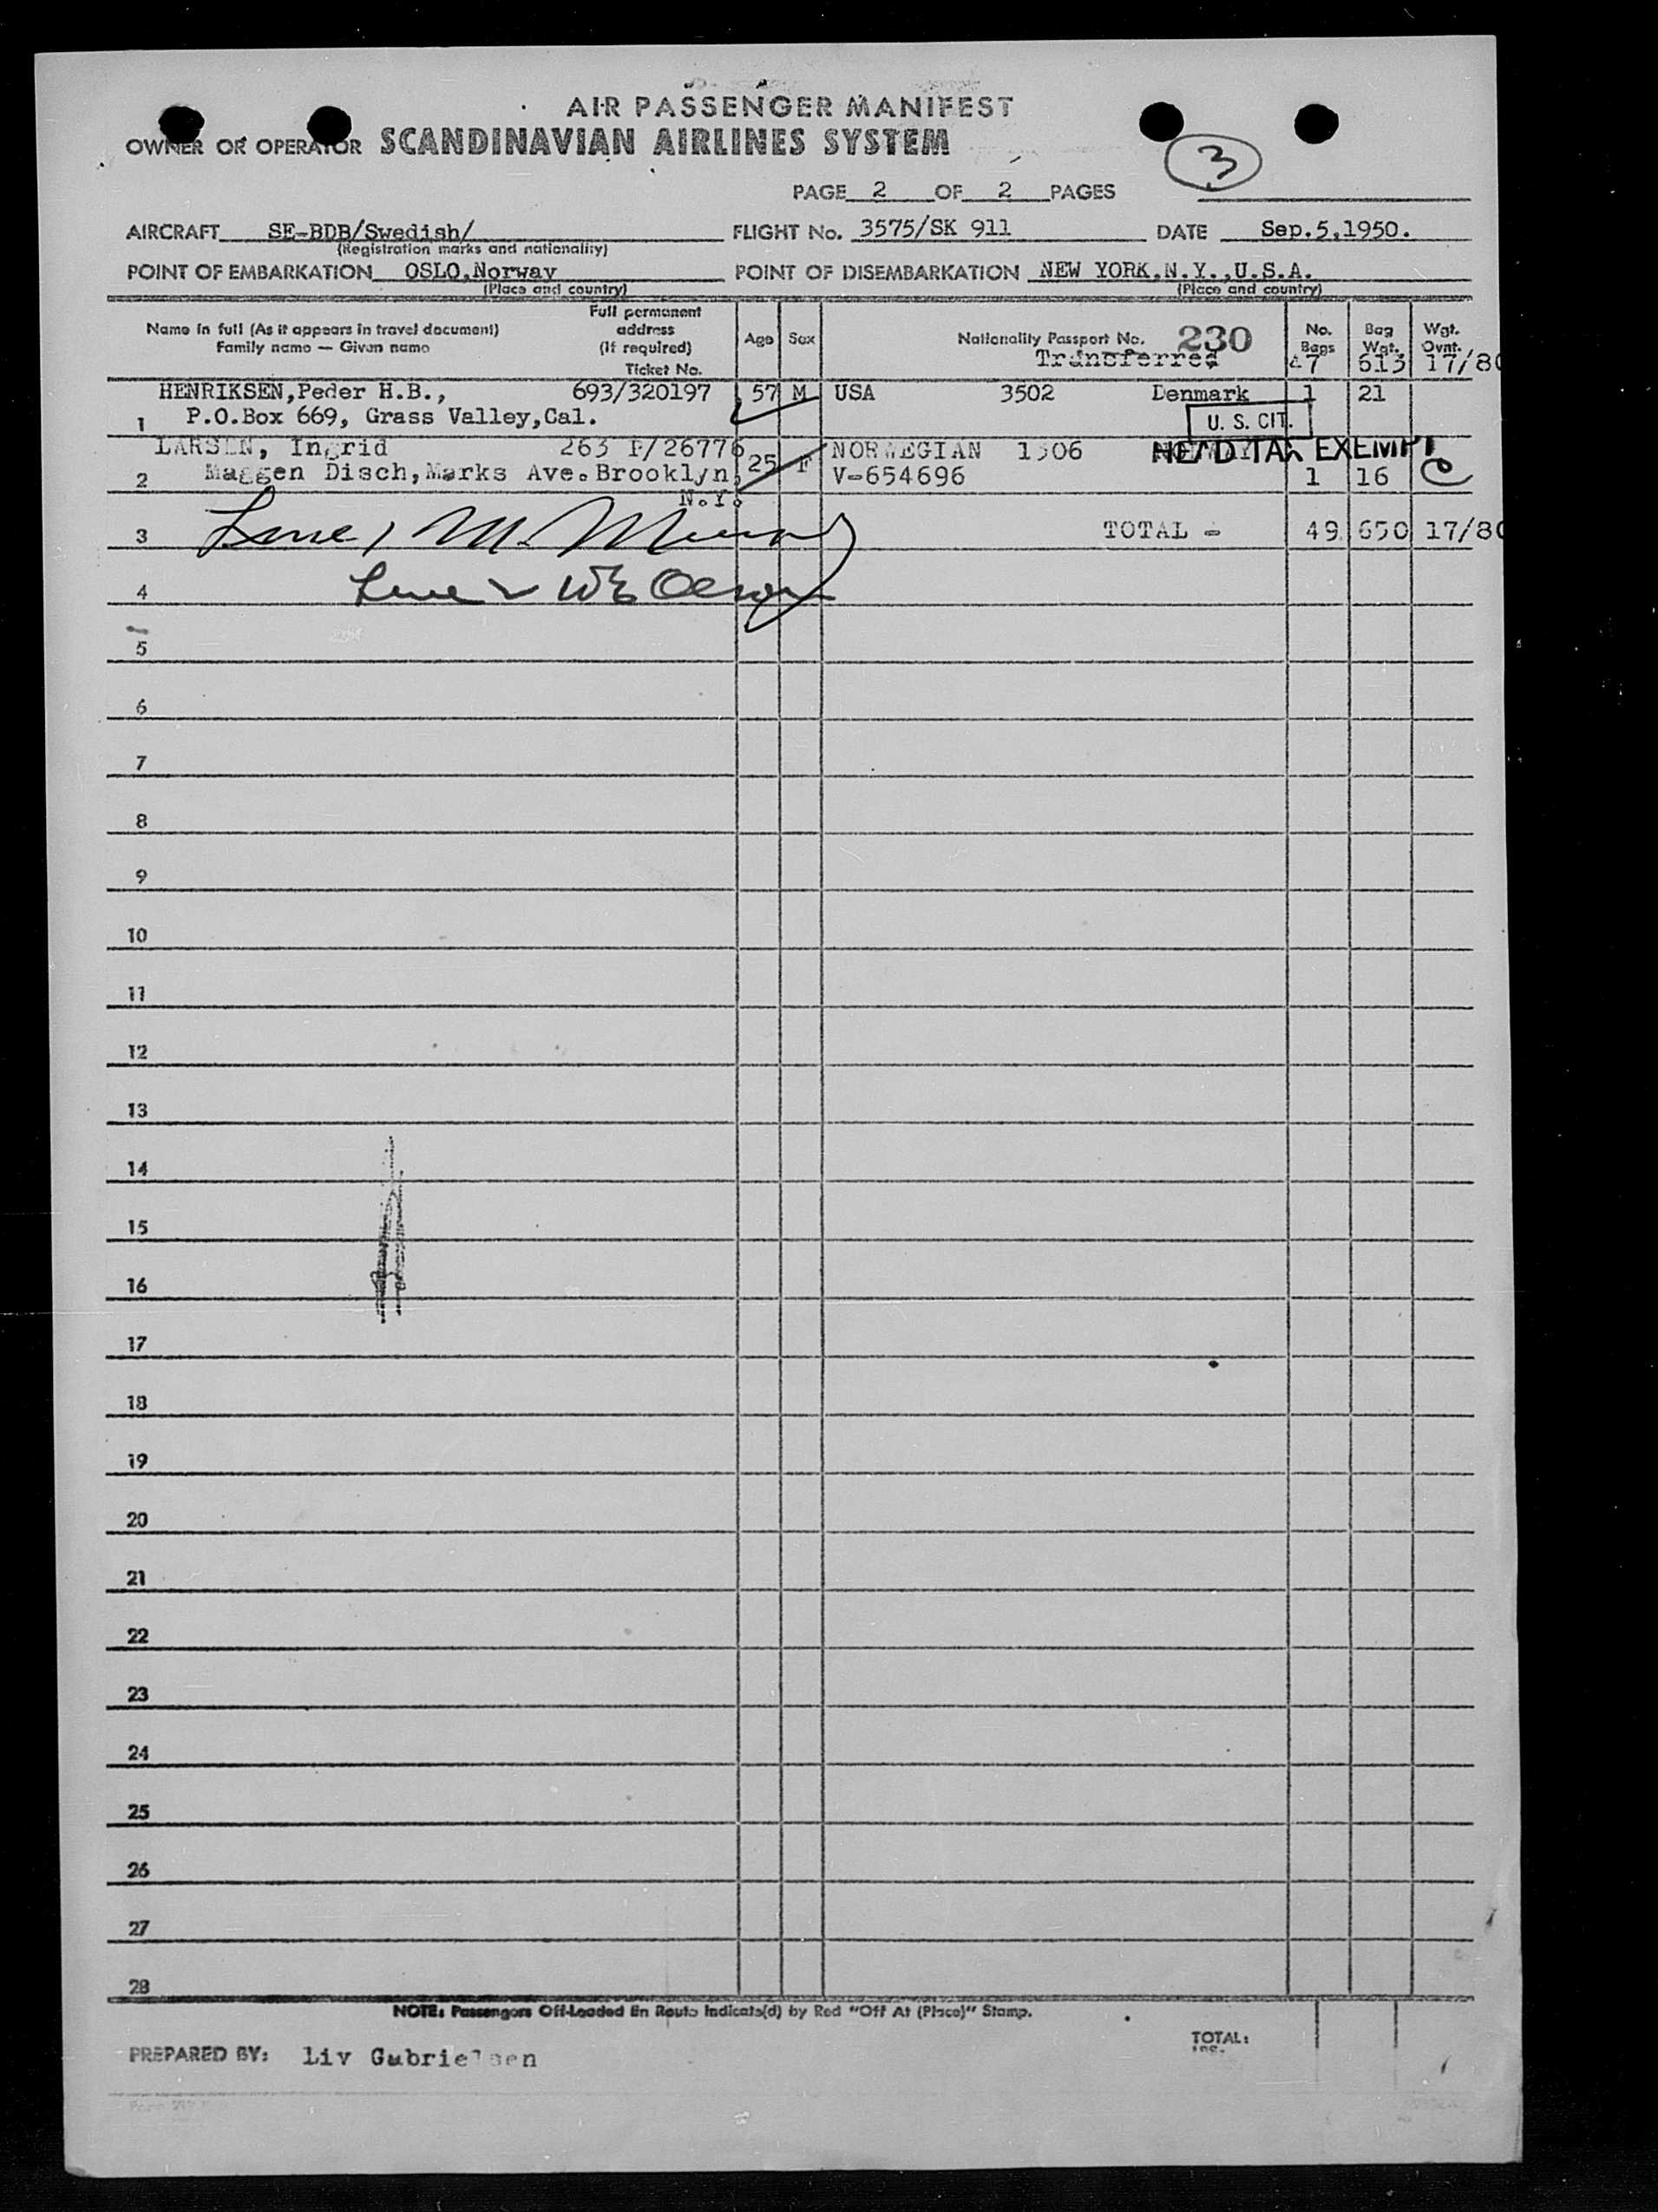 AIR PASSENGER MANIFEST
OWNER OR OPERATOR SCANDINAVIAN AIRLINES SYSTEM
3
PAGE 2 OF 2 PAGES
AIRCRAFT SE-BDB/Swedish/ FLIGHT No. 3575/SK 911 DATE Sep.5,1950.
(Registration marks and nationality)
POINT OF EMBARKATION OSLO,Norway POINT OF DISEMBARKATION NEW YORK,N.Y.,U.S.A.
(Place and country) (Place and country)
Name in full (As it appears in travel document) Family name — Given name Full permanent address (If required) Ticket No. Age Sex Nationality Passport No. 230 No. Bags Bag Wgt. Wgt. Ovnt.
Transferred 47 613 17/80
HENRIKSEN,Peder H.B., 693/320197 57 M USA 3502 Denmark 1 21
1 P.O.Box 669, Grass Valley,Cal. U. S. CIT.
LARSEN, Ingrid 263 F/26776 25 F NORWEGIAN 1506 HEAD TAX EXEMPT
2 Maggen Disch,Marks Ave.Brooklyn, V-654696 1 16
N.Y.
3 Line 1 M. TOTAL - 49 650 17/80
4 Line 2 WE Olson
5
6
7
8
9
10
11
12
13
14
15
16
17
18
19
20
21
22
23
24
25
26
27
28
NOTE: Passengers Off-Loaded En Route Indicate(d) by Red "Off At (Place)" Stamp.
TOTAL:
PREPARED BY: Liv Gabrielsen